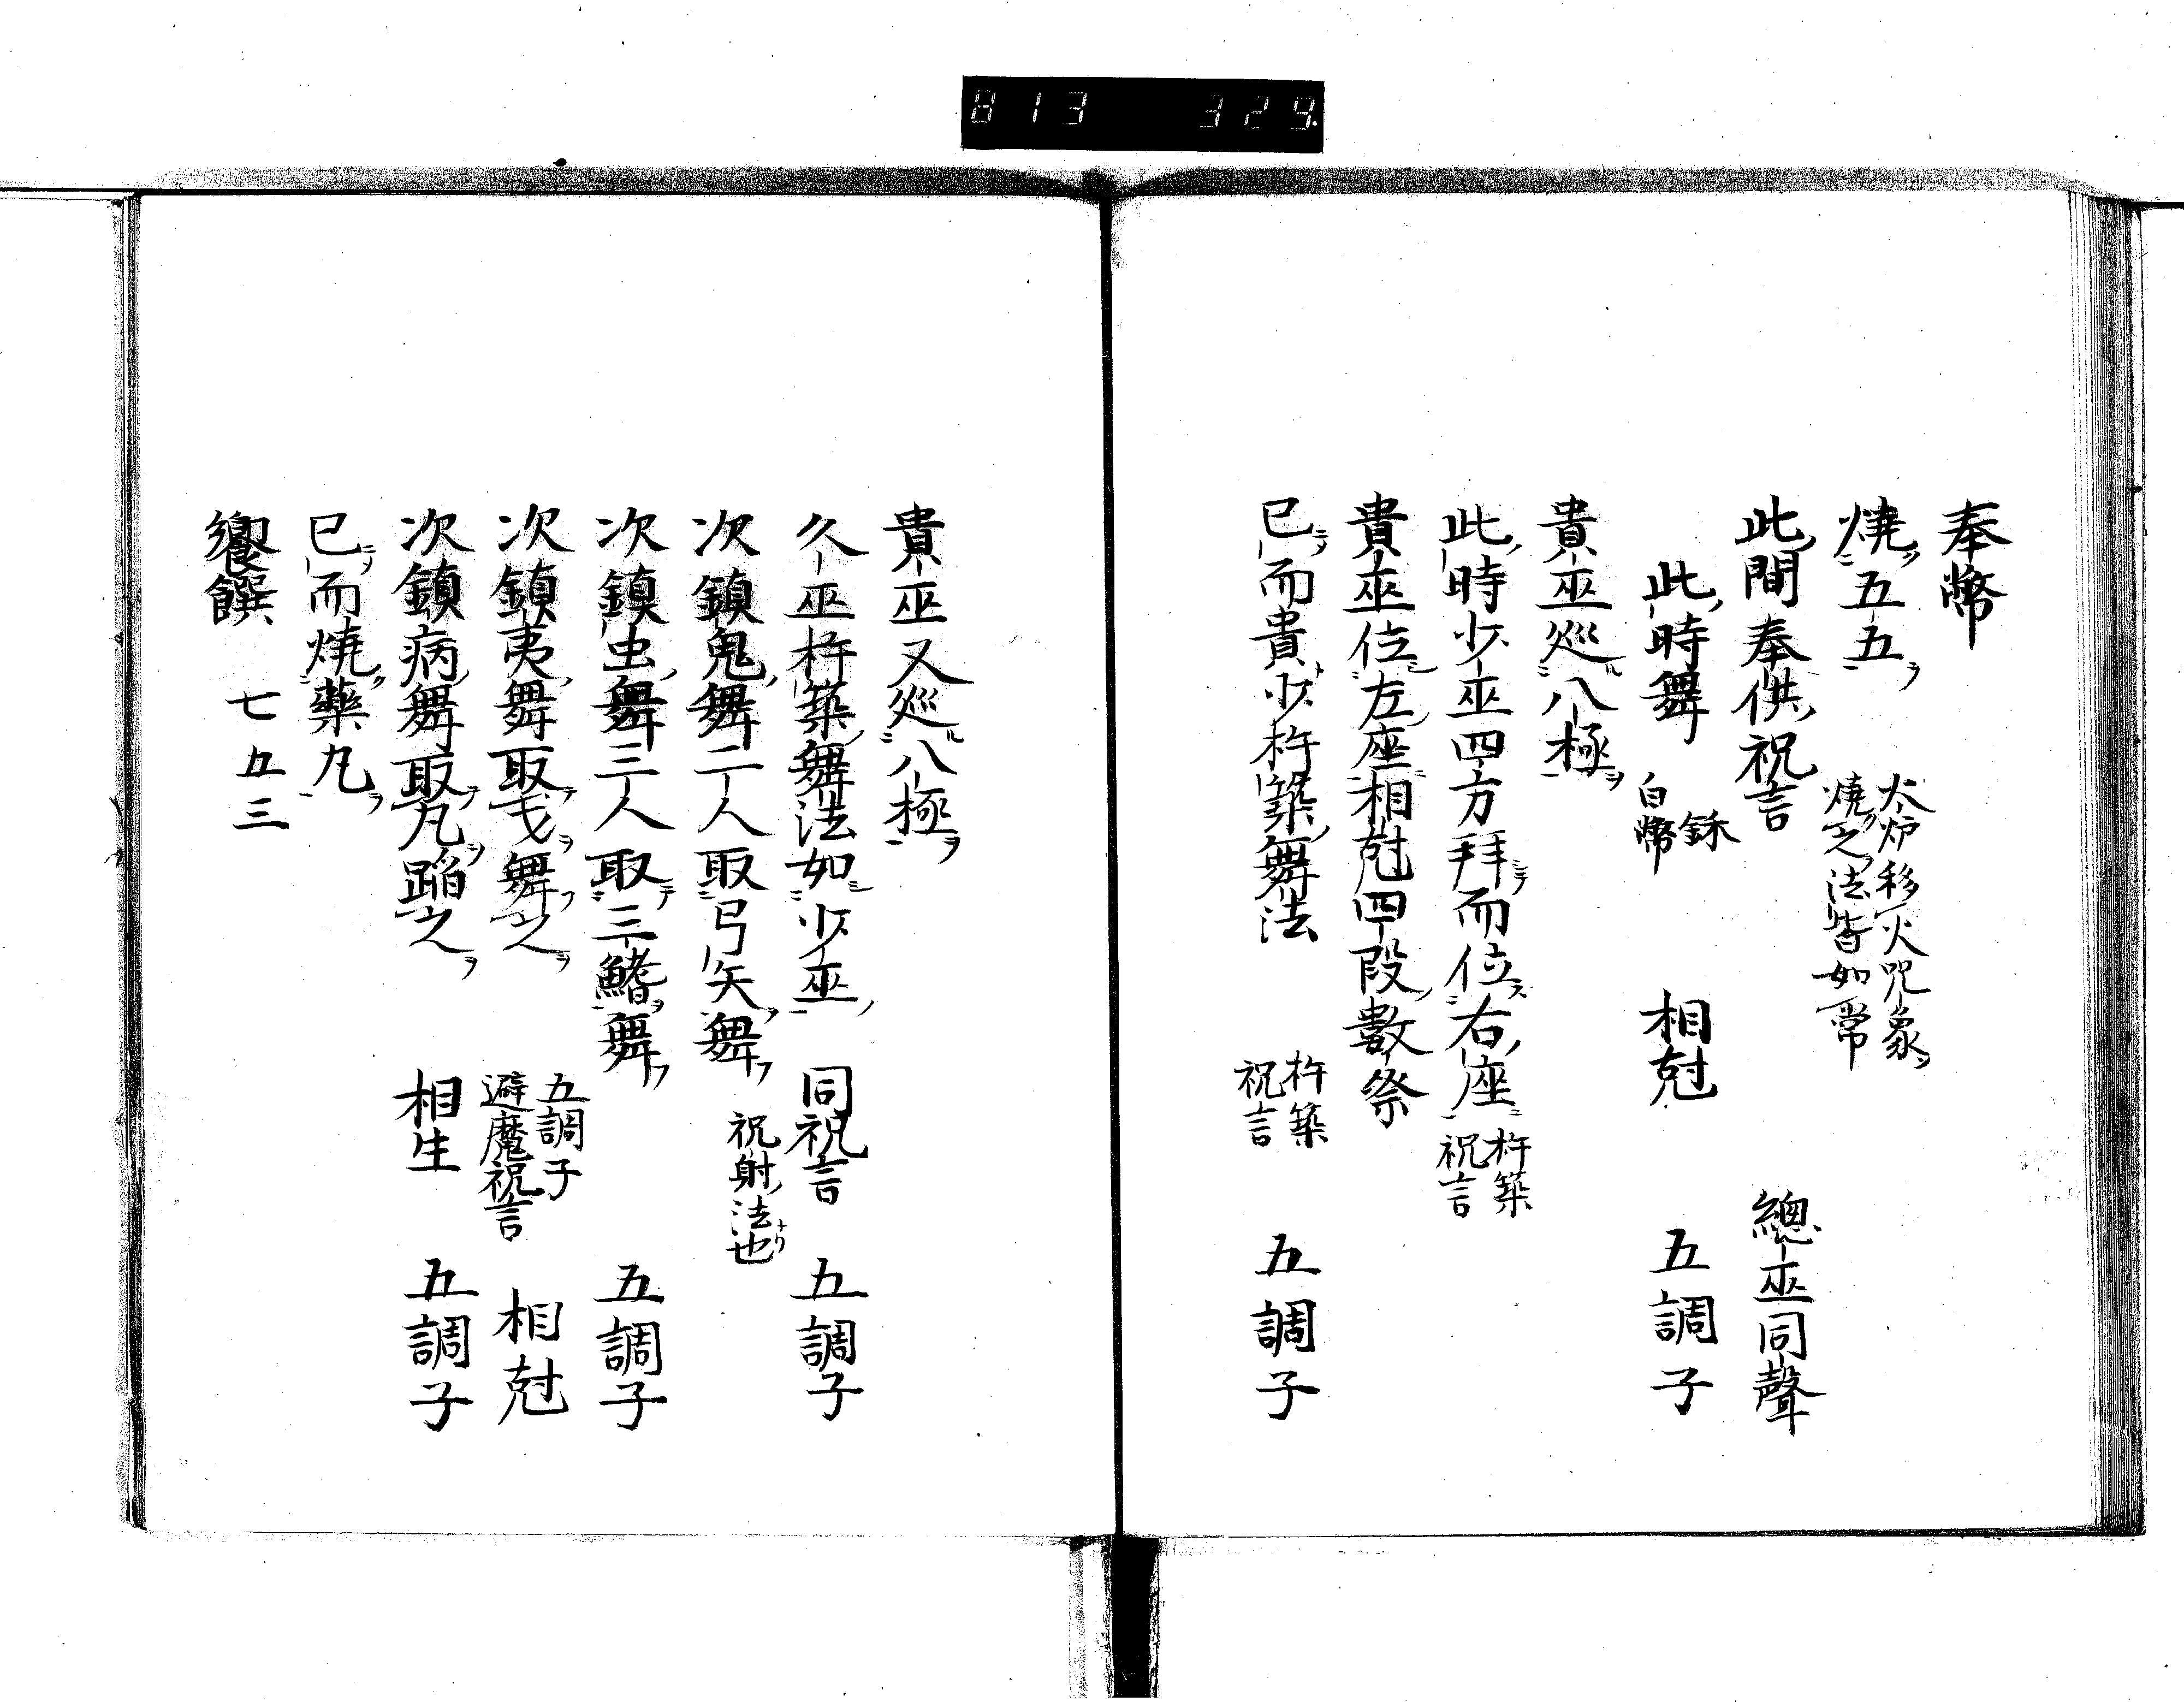 813 329
奉幣
燒五五 大炉移火咒象ヲ
燒之法皆如常
此間奉供祝言 總巫同聲
此時舞 鉌
白幣 相尅 五調子
貴巫巡八極ヲ
此時少巫四方拜而位右座 杵築
祝言
貴巫位左座相尅四段數祭
已而貴少杵築舞法 杵築
祝言 五調子
貴巫又巡八極ヲ
久巫杵築舞法如少巫 同祝言 五調子
次鎮鬼舞二人取弓矢舞 祝射法也
次鎮虫舞三人取三鰭舞 五調子
次鎮夷舞取戈舞之 五調子
避魔祝言 相尅
次鎮病舞取丸蹈之 相生 五調子
已而燒藥丸ヲ
饗饌 七五三